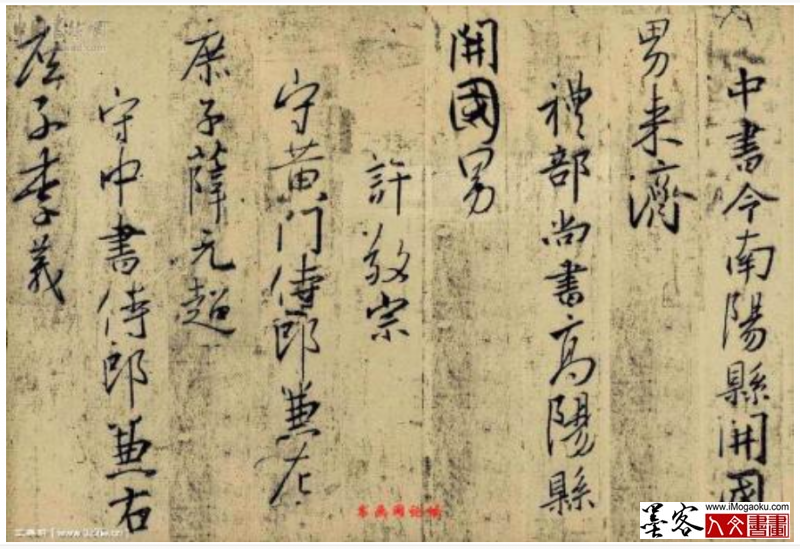 中書令南陽縣開國
男来濟
禮部尚書高陽縣
開國男
許敬宗
守黄门侍郎兼左
庶子薛元超
守中書侍郎兼右
庶子李義
墨客
www.iMogaoku.com
人文書畫